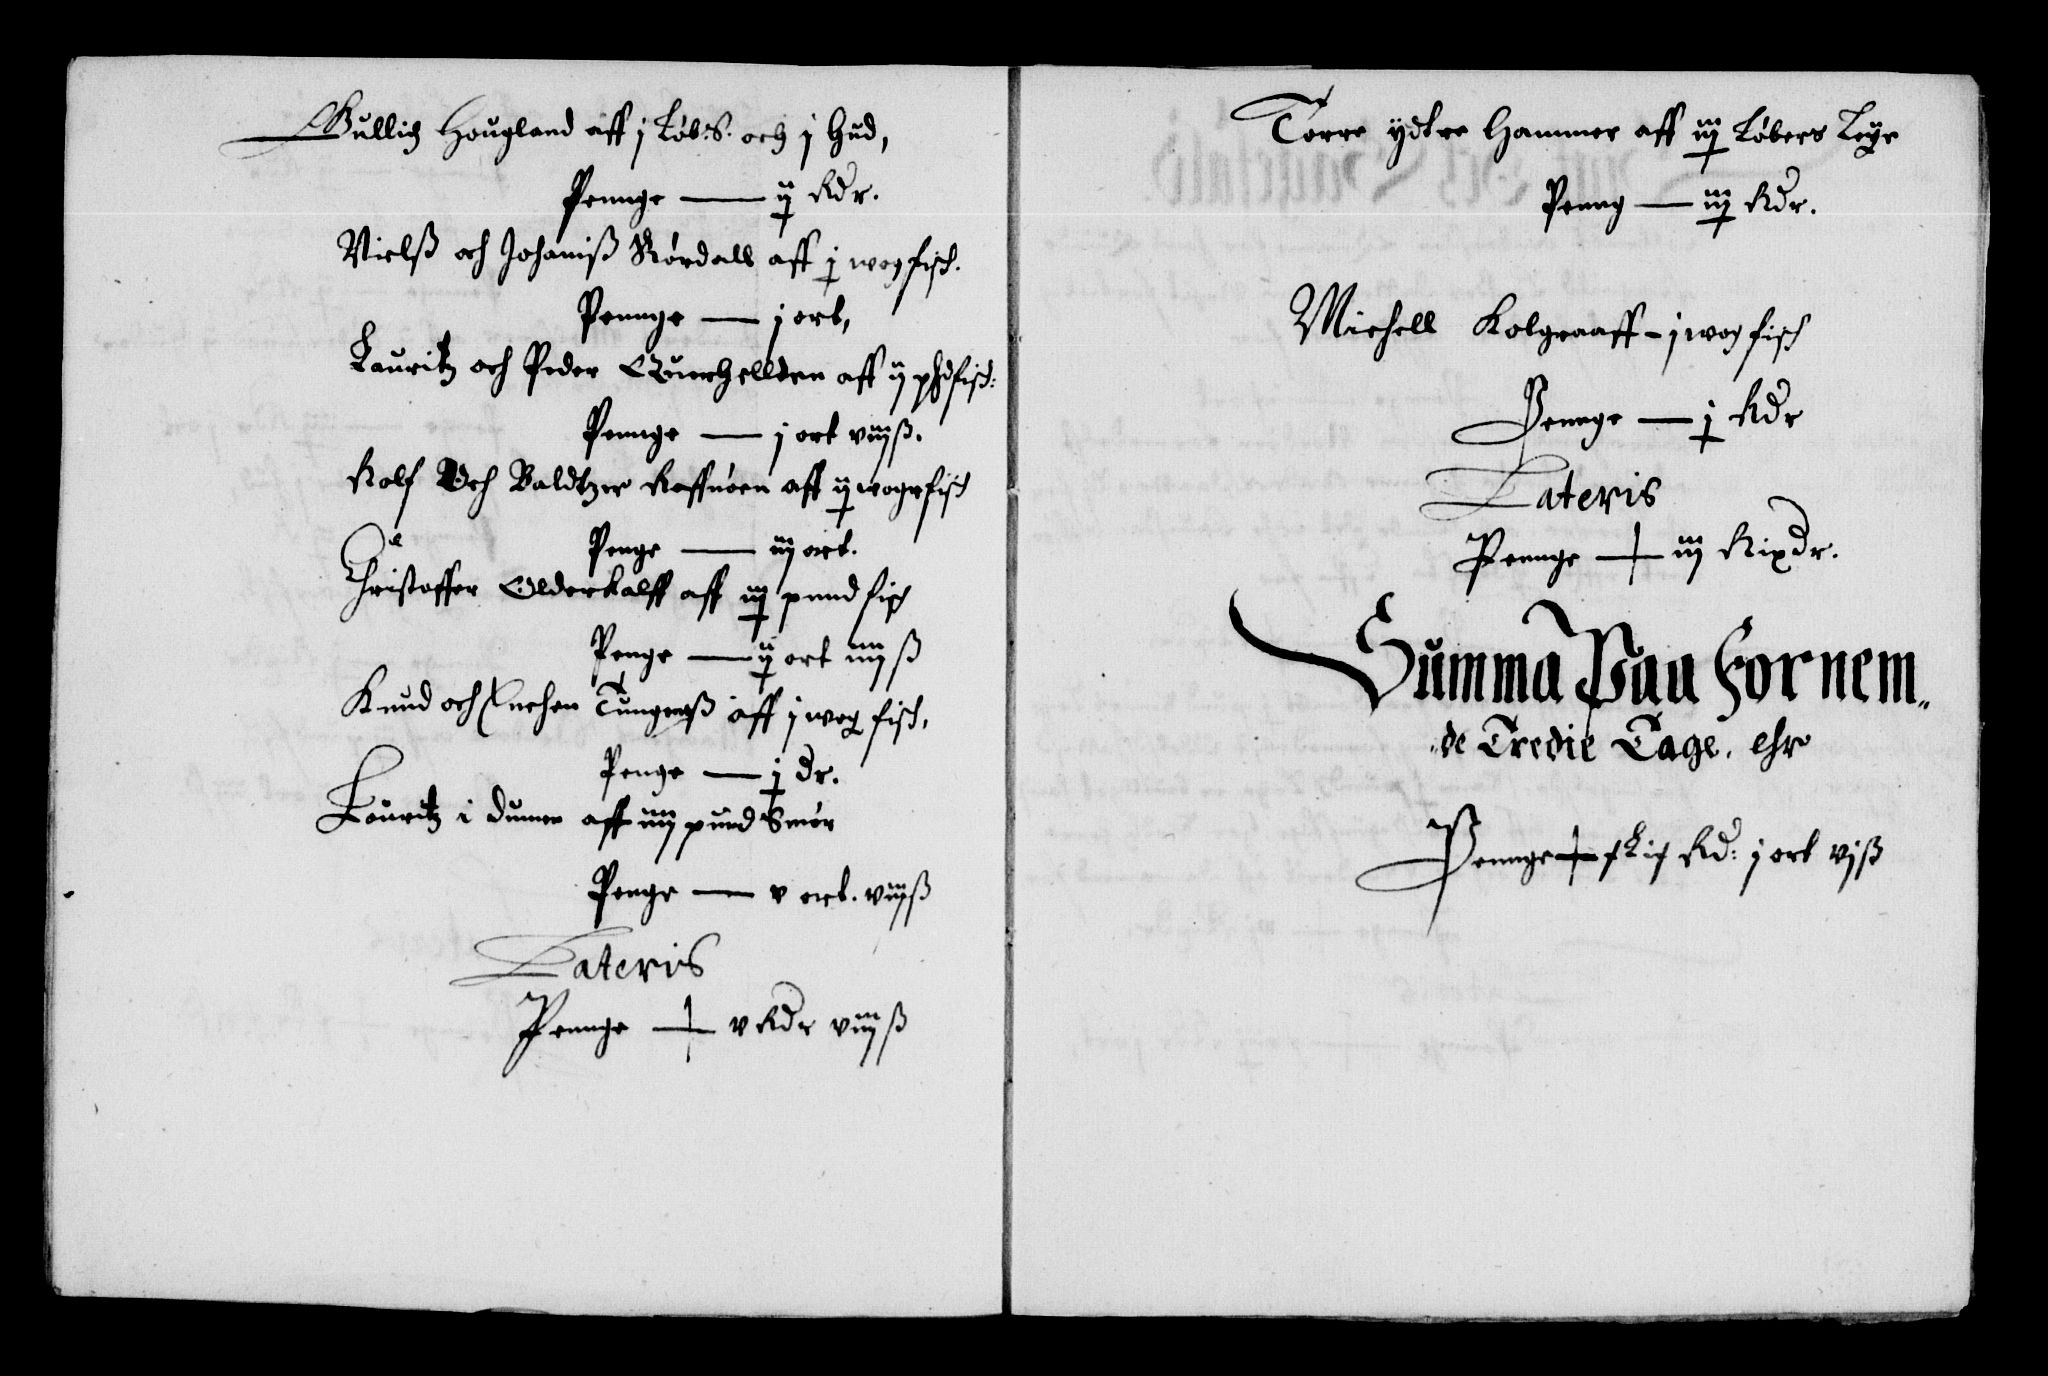 Gullich Hougland aff j Løb: S. och j Hud,
Pennge — ij Rdr.
Nielß och Johaniß Nordall aff j wog fisch.
Pennge — j ort,
Lauritz och Peder Querhellden aff ij pd fisch:
Pennge — j ort viijß.
Rolf Och Baldtzer Raffnøen aff ij woge fisch
Penge — iij ort.
Christoffer Olderkalff aff iij pund fisch
Penge — ij ort iiij ß
Knud och Enchen Tungenß aff j wog fisch,
Penge — j dr.
Lauritz i Dumen aff iiij pund Smør
Penge — v ort. viijß
Lateris
Pennge — v Rdr viij ß
Torre ydtre Hammer aff iij Løbers Leye
Penng — iij Rdr.
Michell Kolgraaff - j wog fisch
Pennge — j Rdr
Lateris
Pennge — iij Rixdr.
Summa Paa Fornem„
de Tredie Tage. ehr
Pennge — Rd: j ort vjß